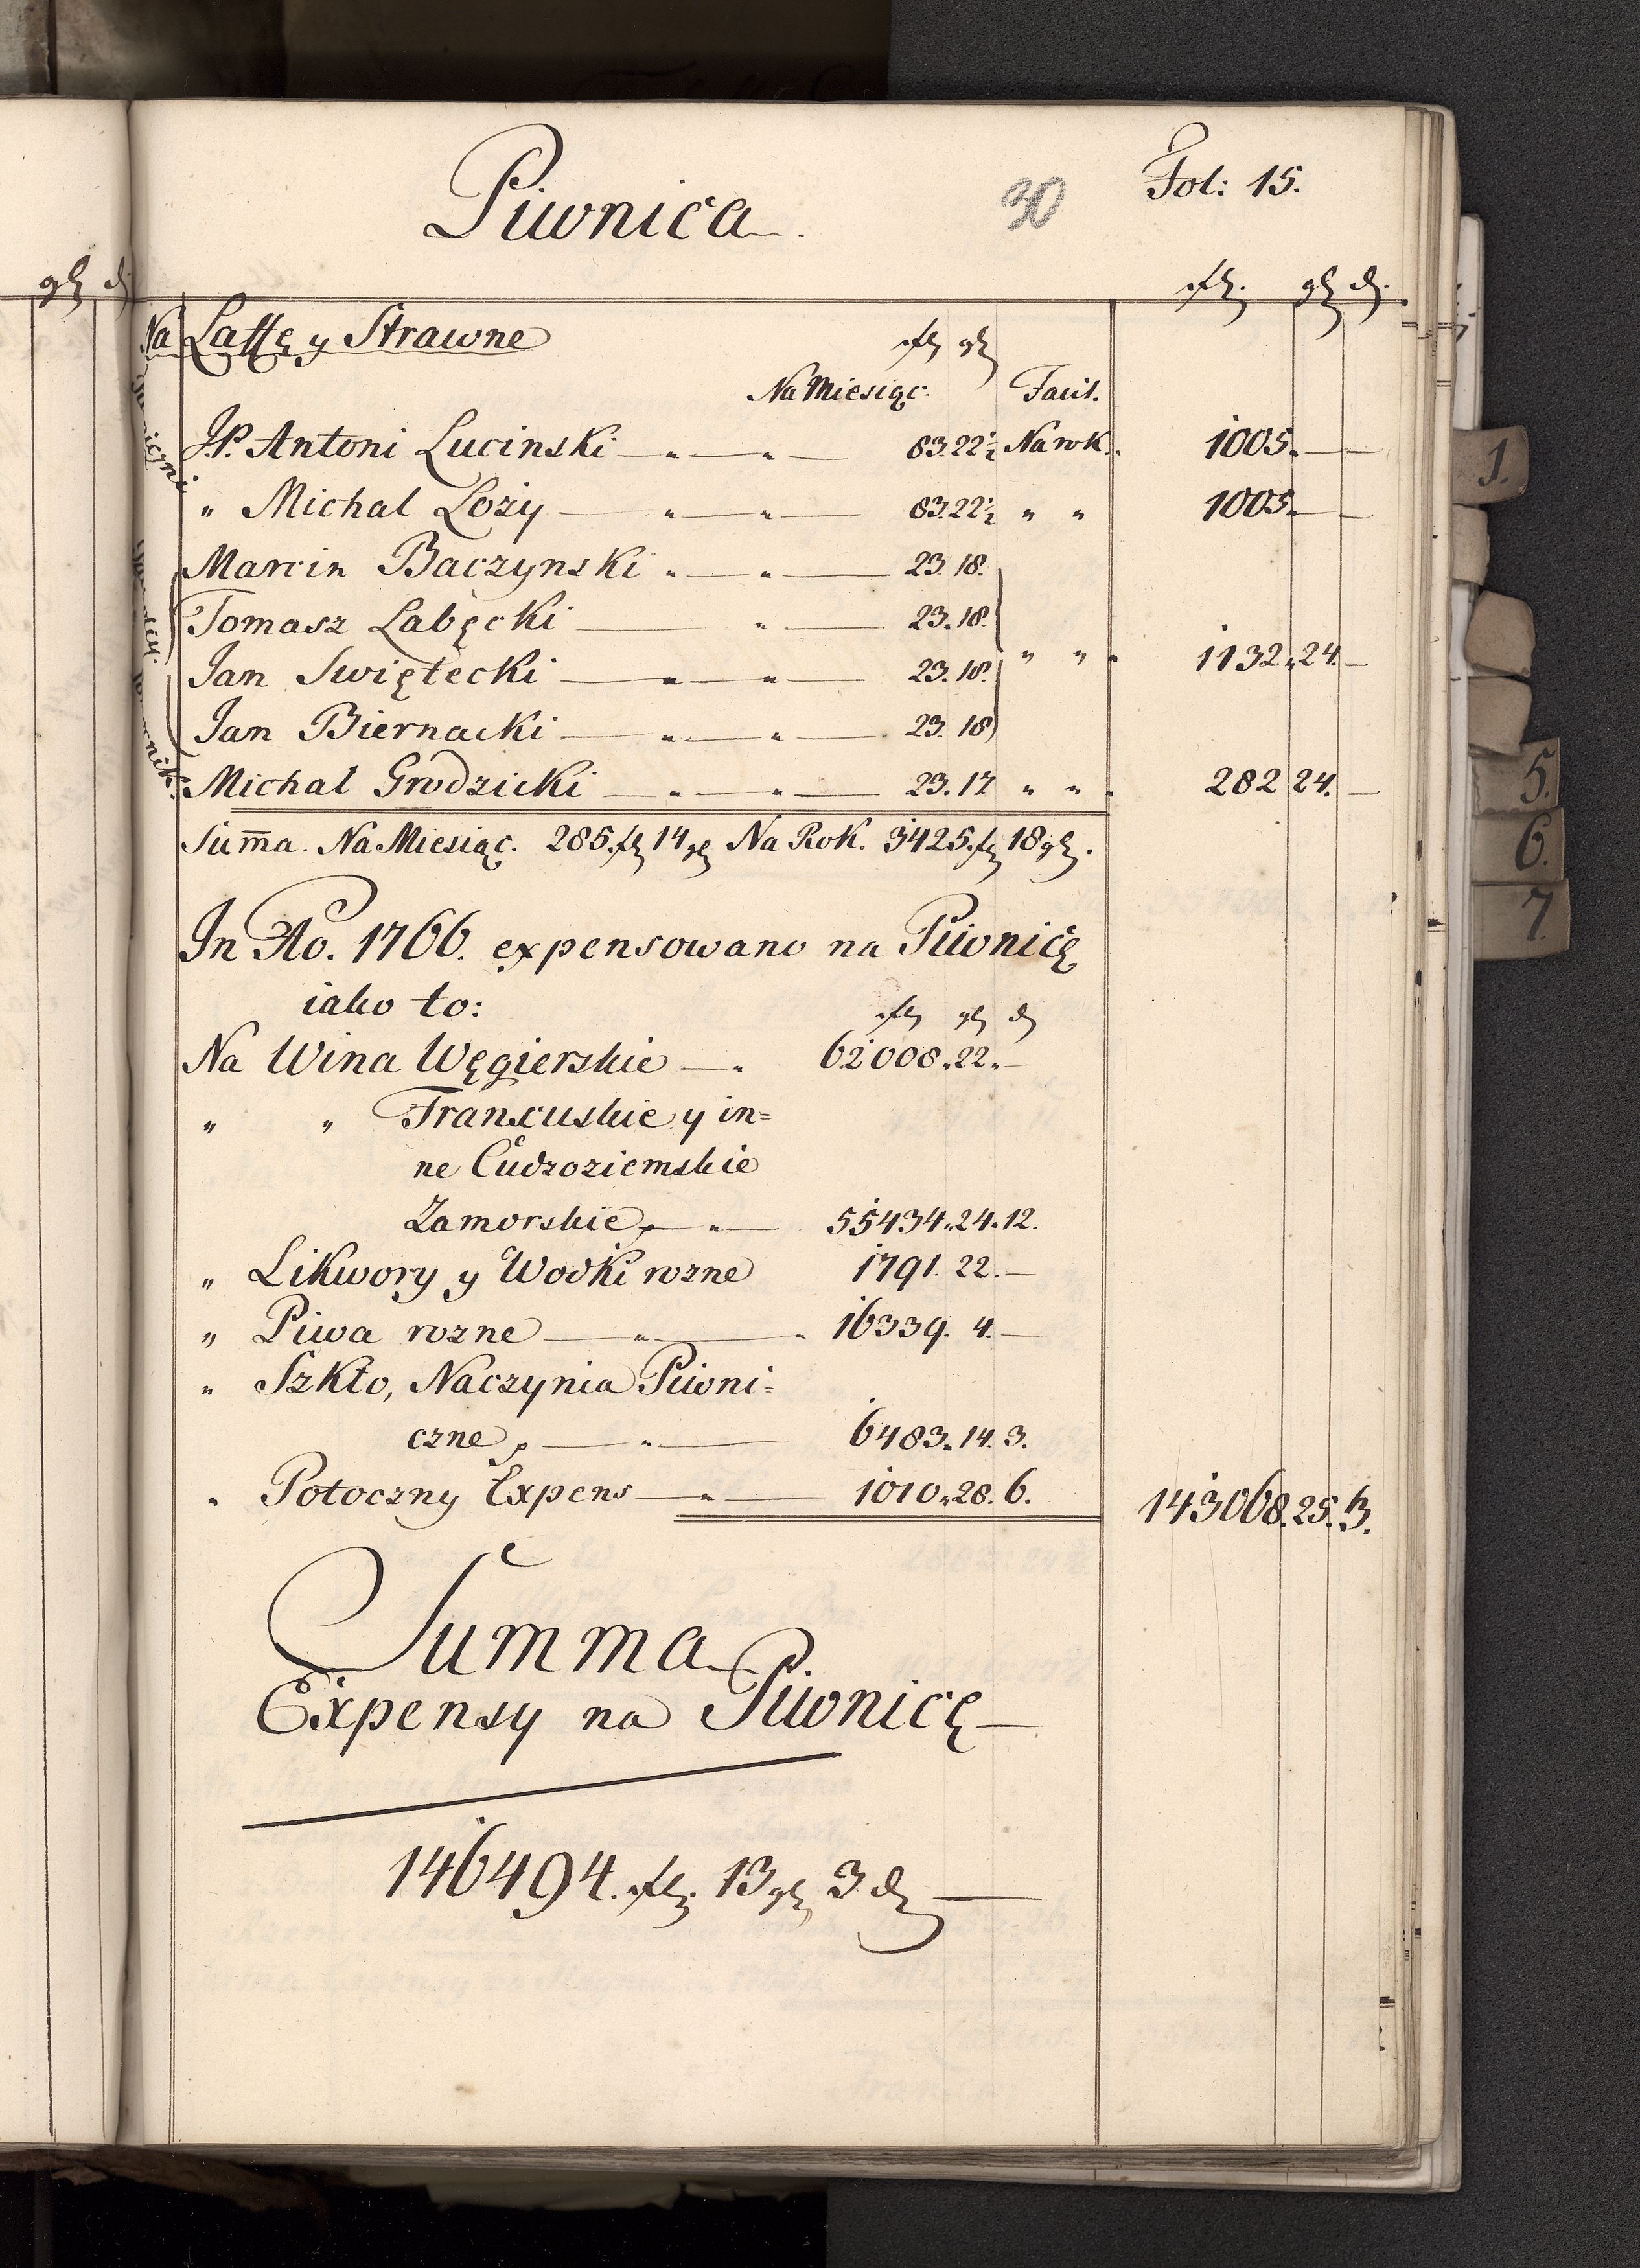 Piwnica.
30
Fol: 15.
fl. gl d.
gl d.
Na Laffę y Strawne
fl gl
Na Miesiąc. Facit.
J.P. Antoni Lucinski — „ — „ — 83.22½ Na rok. 1005. — —
„ Michal Loży — „ — „ — 83.22½ „ „ 1005. — —
Marcin Baczynski „ — „ — 23.18.
Tomasz Labęcki — „ — 23.18.
„ „ 1132.24. —
Jan Swiętecki — „ — „ — 23.18.
Jan Biernacki — „ — „ — 23.18
Michal Grodzicki — „ — „ — 23.17 „ „ 282 24. —
Sum̄a. Na Miesiąc. 285.fl 14 gl Na Rok. 3425.fl 18 gl.
In Ao. 1766. expensowano na Piwnicę
iako to:
fl gl d
Na Wina Węgierskie — „ 62008.22. —
„ „ Francuskie y in=
ne Cudzoziemskie
Zamorskie, — „ — 55434.24.12.
„ Likwory y Wodki rozne 1791. 22. —
„ Piwa rozne — „ — 16339. 4. —
„ Szkło, Naczynia Piwni=
czne, — „ — 6483.14.3.
„ Potoczny Expens — „ — 1010.28.6. 143068.25.3.
Summa
Expensy na Piwnicę —
146494.fl. 13 gl 3 d —
1.
5.
6.
7.